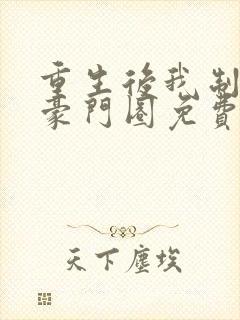 重生後我制
豪門圈免費
天下塵埃